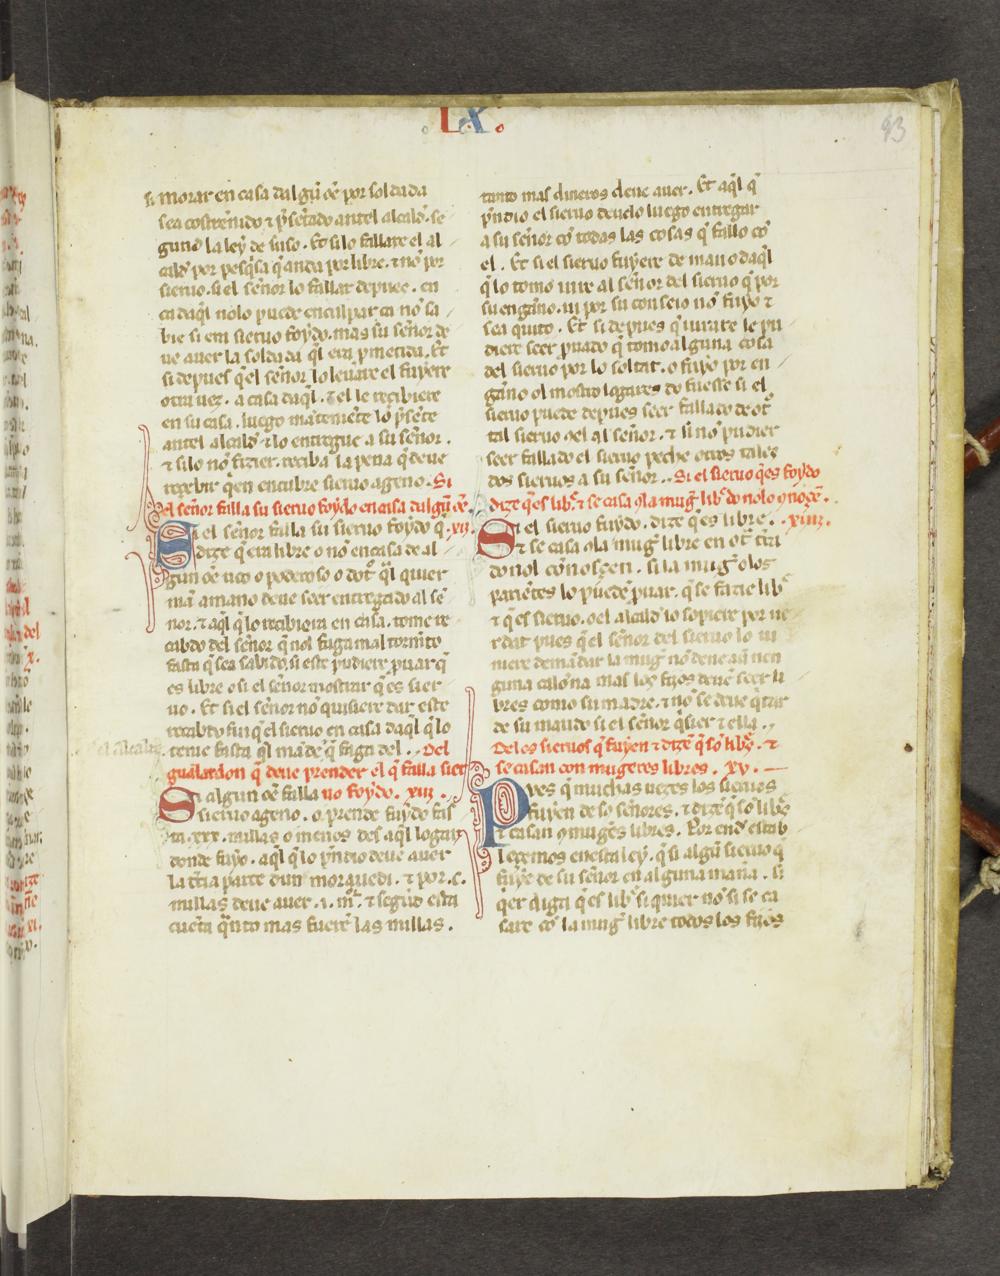 .LX.
93
si morar en casa dalgũ oẽ por soldada
sea costrenido ⁊ p̃setado antel alcald̃. se
gund la ley de suso. Et si lo fallare el al
cald̃ por pesq̃sa q̃ anda por libre. ⁊ nõ por
sieruo. si el señor lo fallar depues. en
ca daq̃l nolo puede enculpar ca nõ sa
bie si era sieruo foydo. mas su señor de
ue auer la soldada q̃l era p̃metida. Et
si depues q̃ el señor lo leuare el fuyere
otra uez. a casa daq̃l. ⁊ el le recibiere
en su casa. luego mãteniẽte lo p̃sẽte
antel alcald̃ ⁊ lo entregue a su señor.
⁊ si lo nõ fizier. reciba la pena q̃ deue
recebir q̃en encubre sieruo ageno. Si
el señor falla su sieruo foydo en casa dalgũ oẽ.
Si el señor falla su sieruo foydo q̃ .xii.
dize q̃ era libre o nõ en casa de al
gun oẽ rico o poderoso o dot̃ q̃l quier
mã amano deue seer entregado al se
ñor. ⁊ aq̃l q̃ lo recibiera en casa. tome re
cabdo del señor q̃ nol faga mal tormẽto
fasta q̃ sea sabido. si este pudiere p̃uar q̃
es libre o si el señor mostrar q̃ es sier
uo. Et si el señor nõ quisiere dar este
recabdo finq̃ el sieruo en casa daq̃l q̃ lo
tiene fasta q̃l mãde q̃ faga del. . Del
el alcalde
gualardon q̃ deue prender el q̃ falla sier
Si algun oẽ falla uo foydo. xiii.
sieruo ageno. o prende fuydo fas
ta .xxx. millas o menos des aq̃l logar
donde fuyo. aq̃l q̃ lo p̃ndio deue auer
la t̃cia parte dun morauedi. ⁊ por .c.
millas deue auer .i. mr̃. ⁊ segũd esta
cueta q̃nto mas fuerẽ las millas.
tanto mas dineros deue auer. Et aq̃l q̃
p̃ndio el sieruo deuelo luego entregar
a su señor cõ todas las cosas q̃ fallo cõ
el. Et si el sieruo fuyere de mano daq̃l
q̃ lo tomo iure al señor del sieruo q̃ por
su engãno. ni por su conseio nõ fuyo ⁊
sea quito. Et si depues q̃ iurare le pu
diere seer p̃uado q̃ tomo alguna cosa
del sieruo por lo soltar. o fuyo por en
gãno ol mostro logares do fuesse si el
sieruo puede depues seer fallado de ot̃
tal sieruo del al señor. ⁊ si nõ pudier
seer fallado el sieruo peche otros tales
dos sieruos a su señor. . Si el sieruo q̃ es foydo
dize q̃ es lib̃. ⁊ se casa 9la mug̃ lib̃ do nolo 9noçẽ.
Si el sieruo fuydo. dize q̃ es libre. .xiiii.
⁊ se casa 9la mug̃ libre en ot̃ t̃ra
do nol cõnosçen. si la mug̃ o los
pariẽtes lo puedẽ p̃uar. q̃ se fazie lib̃
⁊ q̃ es sieruo. o el alcald̃ lo sopiere por ue
rdat pues q̃ el señor del sieruo lo ui
niere demãdar la mug̃ nõ deue auer nen
guna calõna mas los fijos deuẽ seer li
bres como su madre. ⁊ nõ se deue q̃tar
de su maride si el señor q̃sier ⁊ ella. .
Delos sieruos q̃ fuyen ⁊ dizẽ q̃ sõ lib̃s. ⁊
se casan con mugeres libres. .xv.
Pves q̃ muchas uezes los sieruos
fuyen de so señores. ⁊ dizẽ q̃ sõ lib̃s
⁊ casan 9 mugẽs libres. Por ende estab
lecemos en esta ley. q̃ si algũ sieruo q̃
fuye de su señor en alguna mãña. si
q̃er diga q̃ es lib̃ si quier nõ si se ca
sare cõ la mug̃ libre todos los fijos